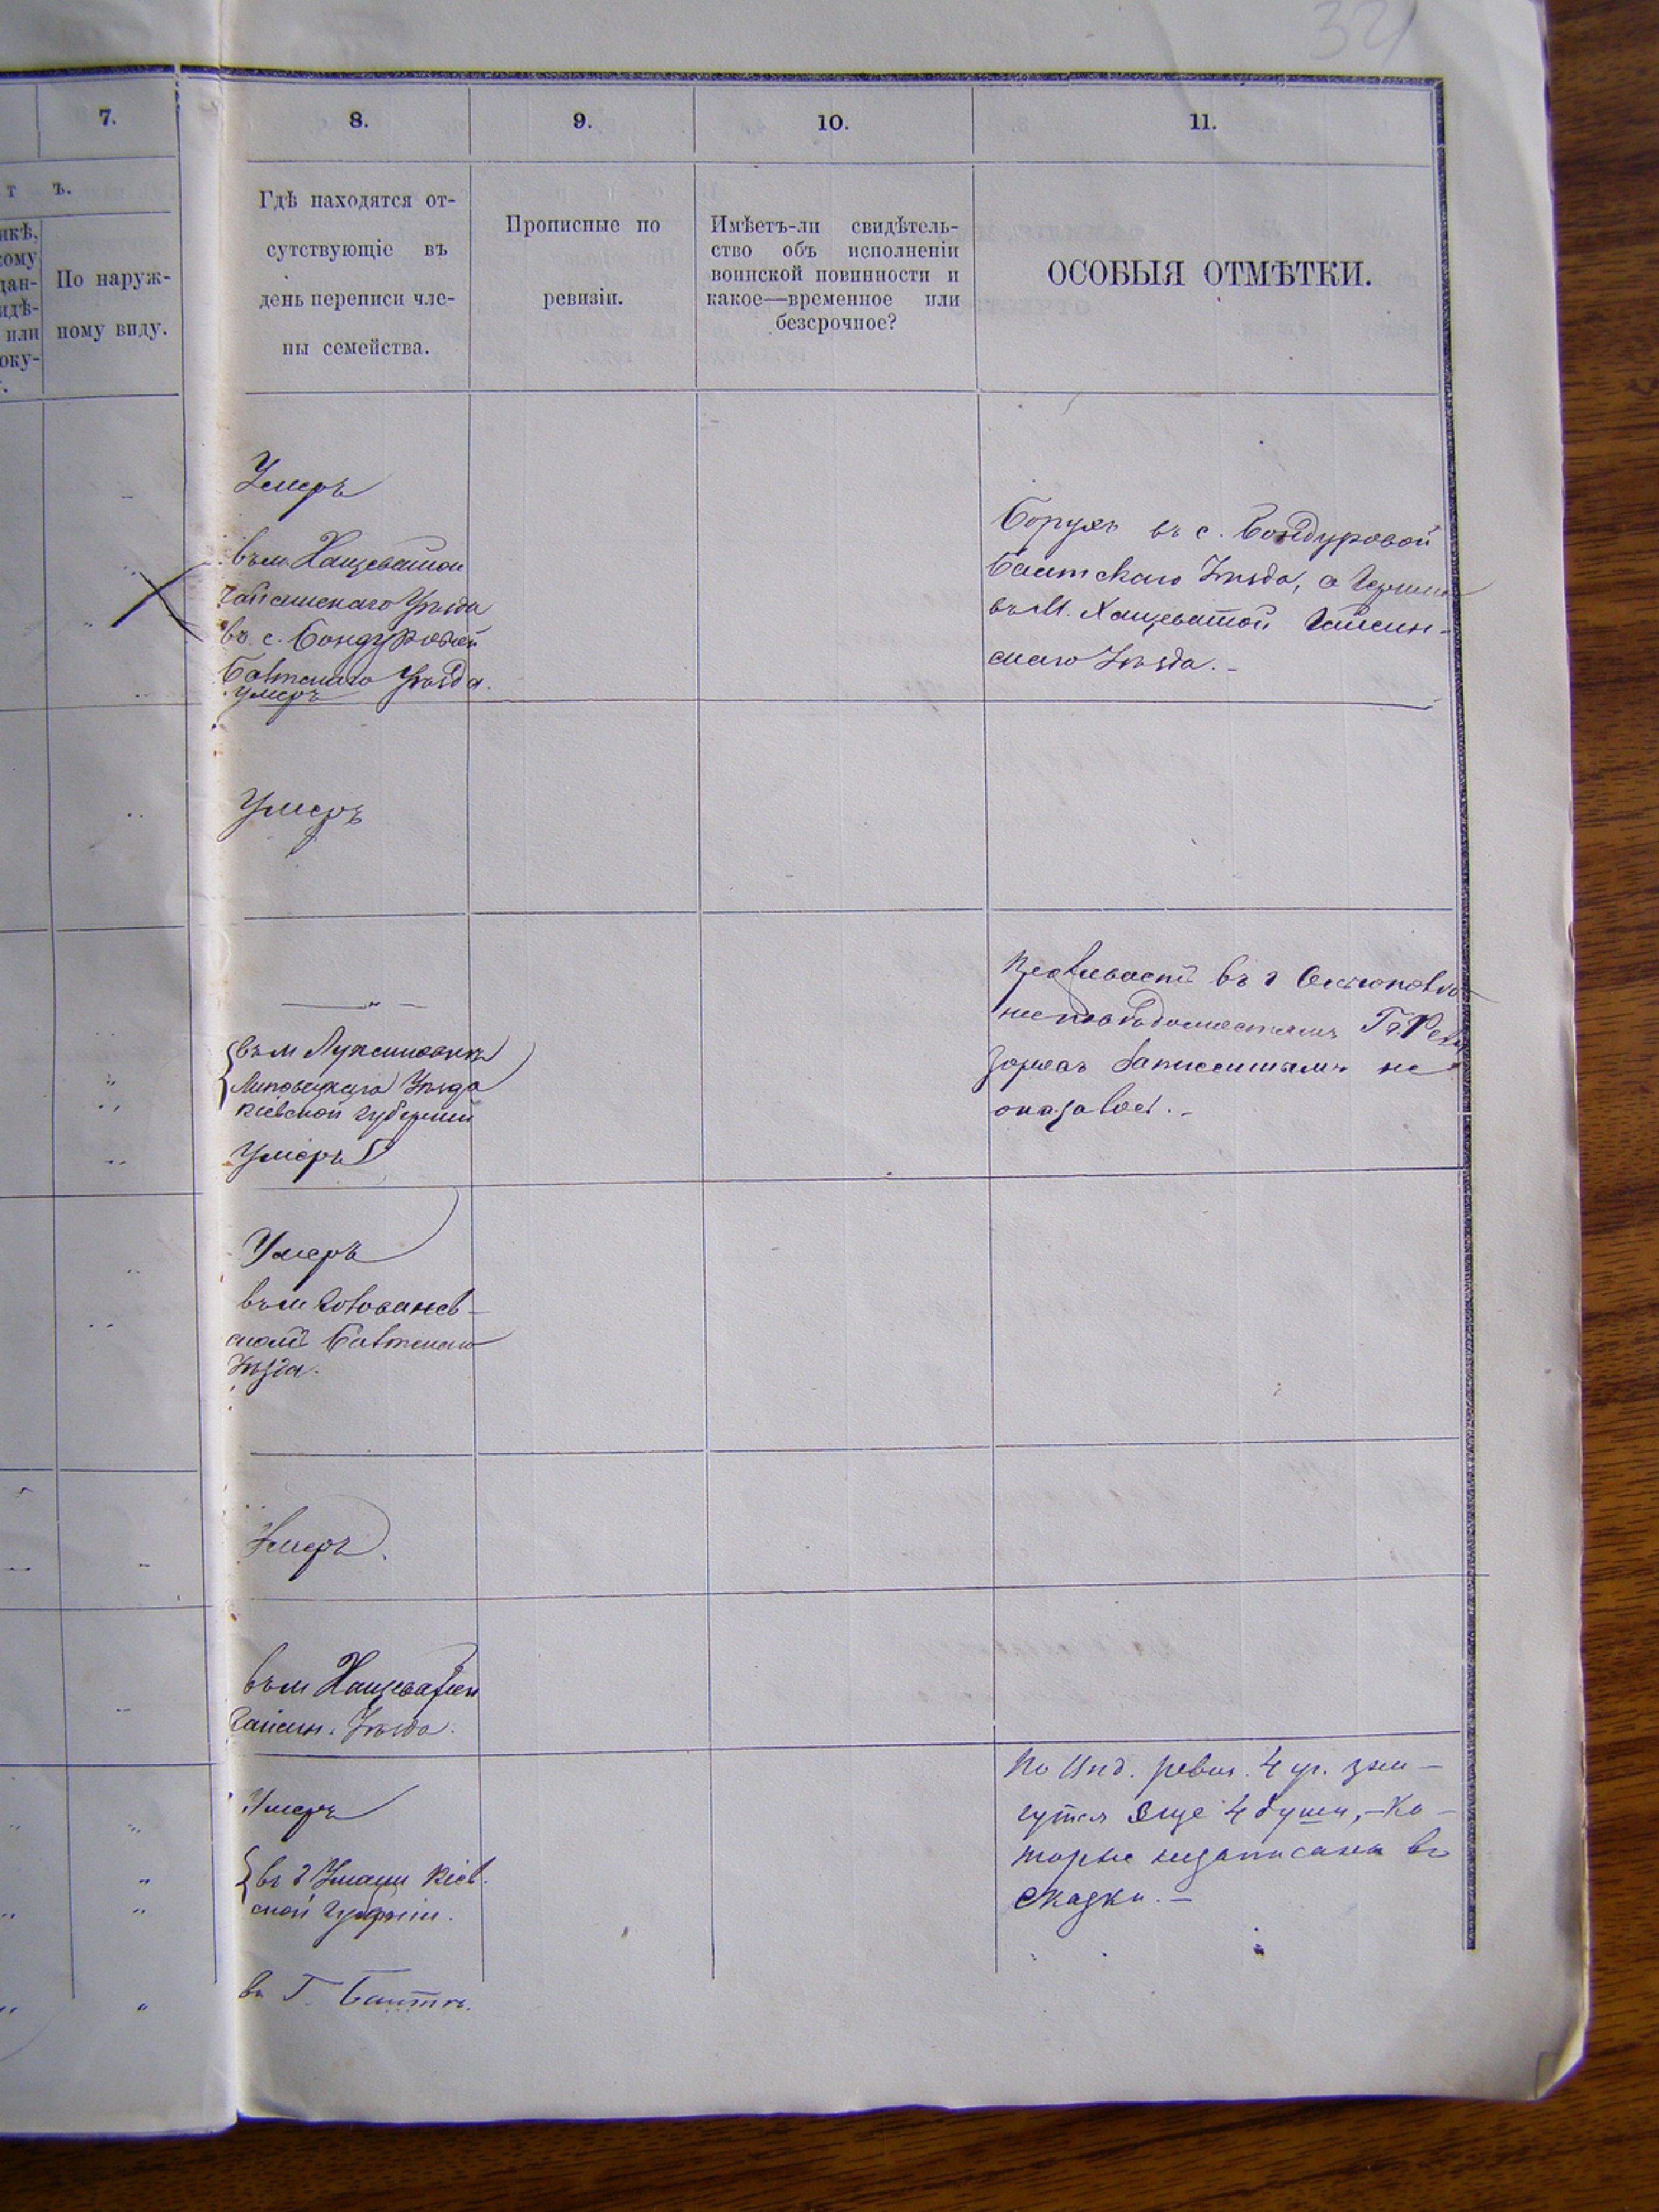 321
7.
8.
9.
10.
11.
т ъ.
По наруж-
ному виду.
Гдѣ находятся от-
сутствующіе въ
день переписи чле-
ны семейства.
Прописные по
ревизіи.
Имѣетъ-ли свидѣтель-
ство объ исполненіи
воинской повинности и
какое—временное или
безсрочное?
ОСОБЫЯ ОТМѢТКИ.
Умеръ
въ м. Хащеватой
Гайсинскаго Уѣзда
въ с. Бондуровой
Балтскаго Уѣзда.
умеръ
Борухъ въ с. Бондуровой
Балтскаго Уѣзда, а
въ М. Хащеватой Гайсин-
скаго Уѣзда. -
Умеръ
въ г
Записаннымъ не
оказалось. -
въ м
Липовецкаго Уѣзда
Кіевской Губерніи
Умеръ
Умеръ
въ м Голованев-
ской Балтскаго
Уѣзда.
Умеръ.
въ м Хащеватой
Гайсин. Уѣзда.
Умеръ
{въ г Умани Кіев.
ской Губерніи.
въ Г. Балтѣ.
По ревиз. 4
еще 4 души, - Ко-
торые незаписаны въ
сказки. -